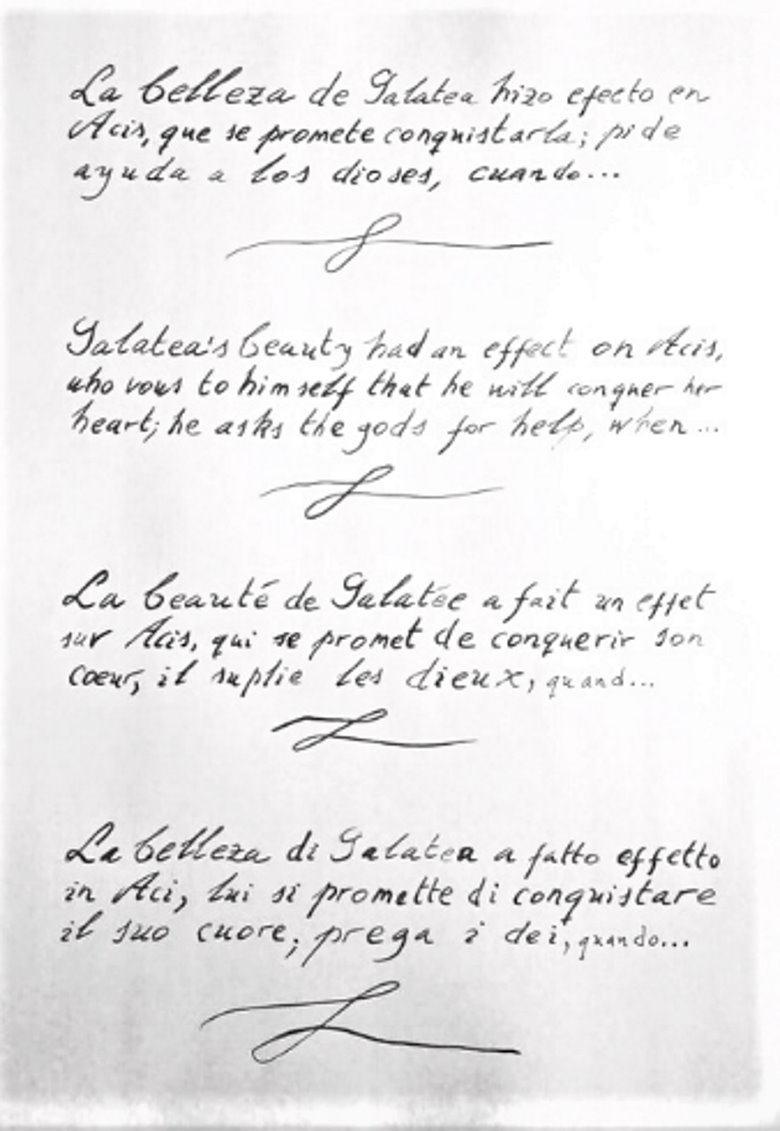 La belleza de Galatea hizo efecto en
Acis, que se promete conquistarla; pide
ayuda a los dioses, cuando...
Galatea's beauty had an effect on Acis,
who vows to himself that he will conquer her
heart; he asks the gods for help, when...
La beauté de Galatée a fait un effet
sur Acis, qui se promet de conquerir son
coeur, il suplie les dieux, quand...
La belleza di Galatea a fatto effetto
in Aci, lui si promette di conquistare
il suo cuore, prega i dei, quando...